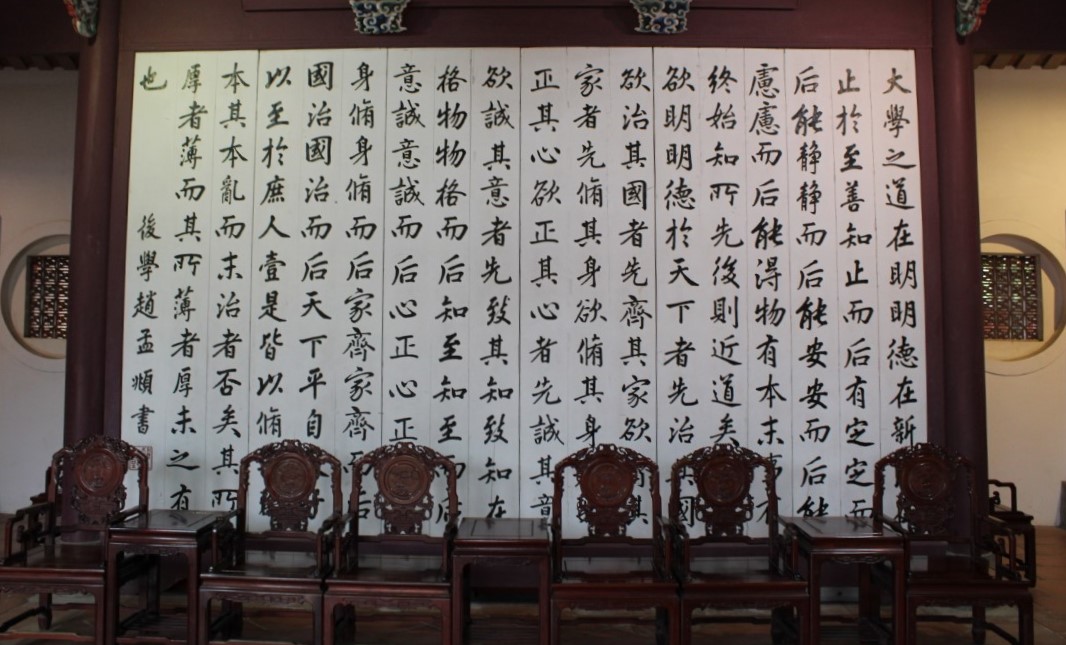 大學之道在明明德在新
止於至善知止而后有定定而
后能静静而后能安安而后能
慮慮而后能得物有本末事有
終始知所先後則近道矣
欲明明德於天下者先治其國
欲治其國者先齊其家欲齊其
家者先脩其身欲脩其身
正其心欲正其心者先誠其意
欲誠其意者先致其知致知在
格物物格而后知至知至而后
意誠意誠而后心正心正
身脩身脩而后家齊家齊而后
國治國治而后天下平自
以至於庶人壹是皆以脩
本其本亂而末治者否矣其所
厚者薄而其所薄者厚未之有
也 後學趙孟頫書